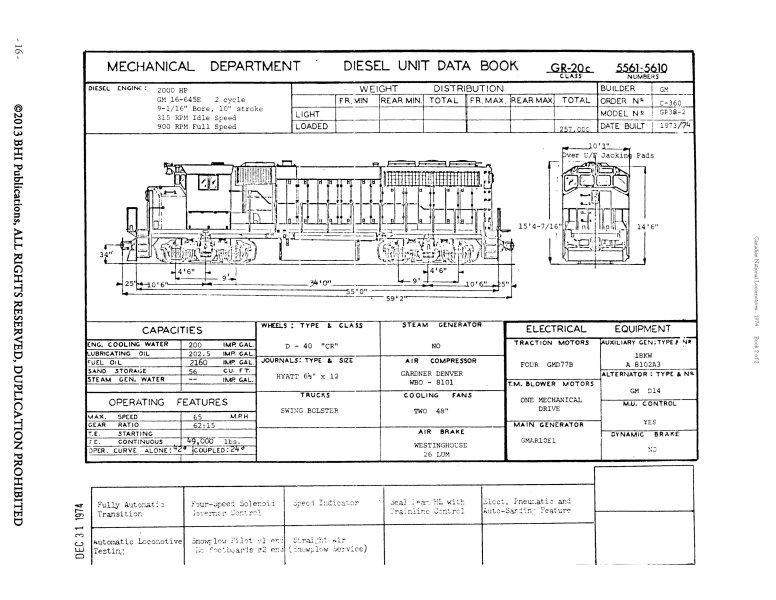 - 16 -
©2013 BHI Publications, ALL RIGHTS RESERVED, DUPLICATION PROHIBITED
Canadian National Locomotives - 1974 Book 2 of 2
MECHANICAL DEPARTMENT DIESEL UNIT DATA BOOK GR-20c 5561-5610
CLASS NUMBERS
DIESEL ENGINE: 2000 HP
GM 16-645E 2 cycle
9-1/16" Bore, 10" stroke
315 RPM Idle Speed
900 RPM Full Speed
WEIGHT DISTRIBUTION
FR. MIN REAR MIN. TOTAL FR. MAX. REAR MAX. TOTAL
LIGHT
LOADED 257,000
BUILDER GM
ORDER Nº C-360
MODEL Nº GP38-2
DATE BUILT 1973/74
10'3"
Over O/E Jacking Pads
15'4-7/16" 14'6"
34"
4'6" 4'6"
9' 9'
25" 10'6" 34'0" 10'6" 25"
55'0"
59'2"
CAPACITIES
ENG. COOLING WATER 200 IMP. GAL.
LUBRICATING OIL 202.5 IMP. GAL.
FUEL OIL 2160 IMP. GAL.
SAND STORAGE 56 CU. FT.
STEAM GEN. WATER -- IMP. GAL.
OPERATING FEATURES
MAX. SPEED 65 M.P.H
GEAR RATIO 62:15
T.E. STARTING
T.E. CONTINUOUS 49,000 lbs.
OPER. CURVE ALONE: 42° COUPLED: 24°
WHEELS: TYPE & CLASS
D - 40 "CR"
JOURNALS: TYPE & SIZE
HYATT 6½" x 12
TRUCKS
SWING BOLSTER
STEAM GENERATOR
NO
AIR COMPRESSOR
GARDNER DENVER
WBO - 8101
COOLING FANS
TWO 48"
AIR BRAKE
WESTINGHOUSE
26 LUM
ELECTRICAL EQUIPMENT
TRACTION MOTORS
FOUR GMD77B
T.M. BLOWER MOTORS
ONE MECHANICAL
DRIVE
MAIN GENERATOR
GMAR10E1
AUXILIARY GEN: TYPE / Nº
18KW
A 8102A3
ALTERNATOR: TYPE & Nº
GM D14
M.U. CONTROL
YES
DYNAMIC BRAKE
NO
DEC 31 1974
Fully Automatic
Transition
Four-Speed Solenoid
Governor Control
Speed Indicator
Seal Beam HL with
Trainline Control
Elect. Pneumatic and
Auto-Sanding Feature
Automatic Locomotive
Testing
Snowplow Pilot #1 end
No Footboards #2 end
Straight Air
(Snowplow Service)